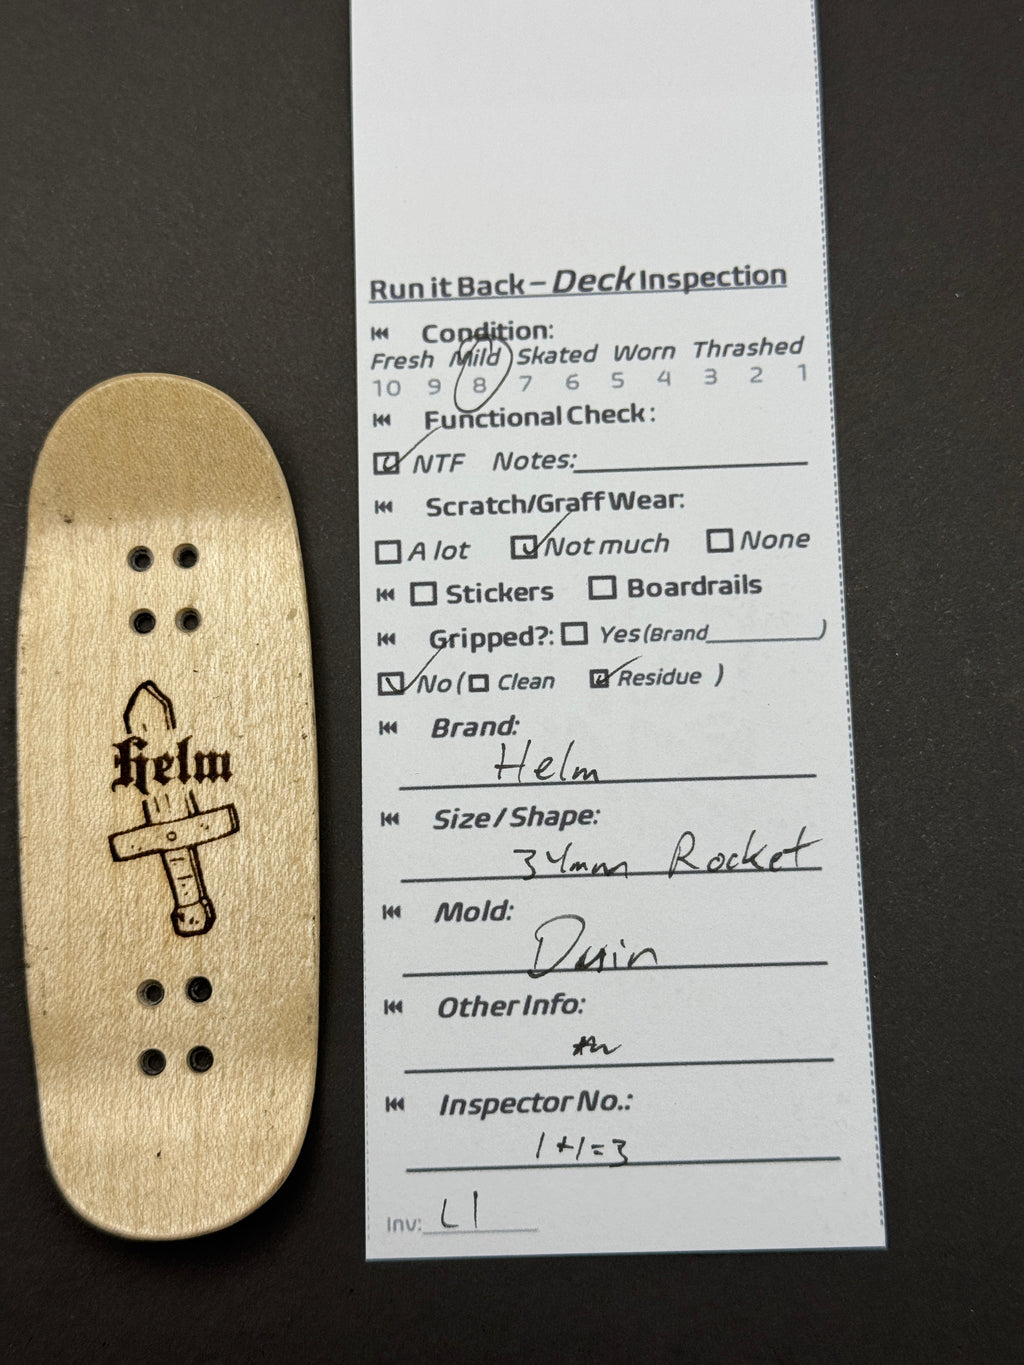 helm
Run it Back – Deck Inspection
Condition:
Fresh Mild Skated Worn Thrashed
10 9 8 7 6 5 4 3 2 1
Functional Check:
NTF Notes:
Scratch/Graff Wear:
A lot Not much None
Stickers Boardrails
Gripped?: Yes (Brand )
No ( Clean Residue )
Brand:
Helm
Size / Shape:
34mm Rocket
Mold:
Other Info:
Inspector No.:
1+1=3
Inv: L1